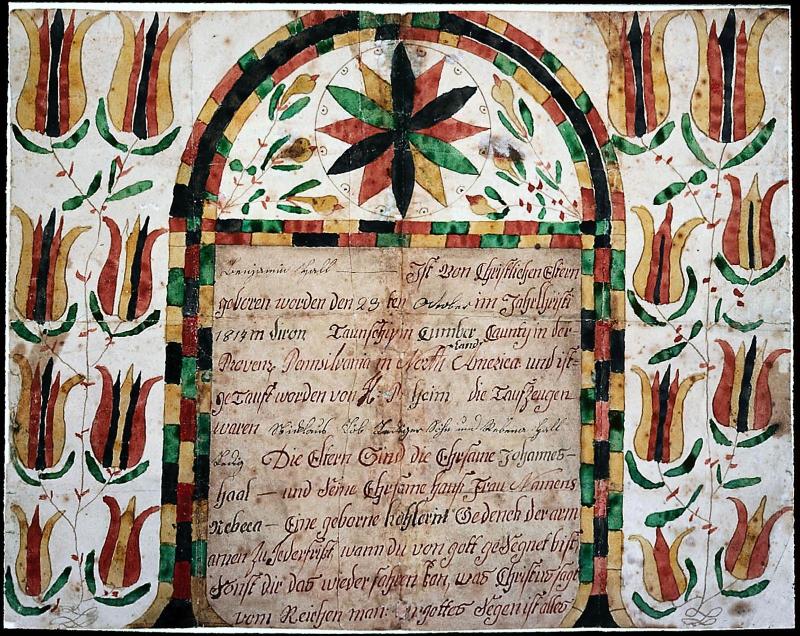 Benjamin Hall — Ist Von Christlichen Eltern
geboren worden den 23 ten october im Jahr Christi
1814 in diron Taunschip in Cumber Caunty in der
land
Provenz Pennsilvania in North America und ist
geTauft worden von heim die TaufZeugen
waren Sohn und Rebena Hall
ledig Die Eltern Sind die Ehrsame Johannes-
haal — und Seine Ehrsame hauß Frau Namens
Rebeca — Eine geborne Gedenck der arm
armen Zu Jederfrist wann du von gott geSegnet bist
Sonst dir das wiederfahren kan, was Christus sagt
vom Reichen man: gottes Segen ist alles